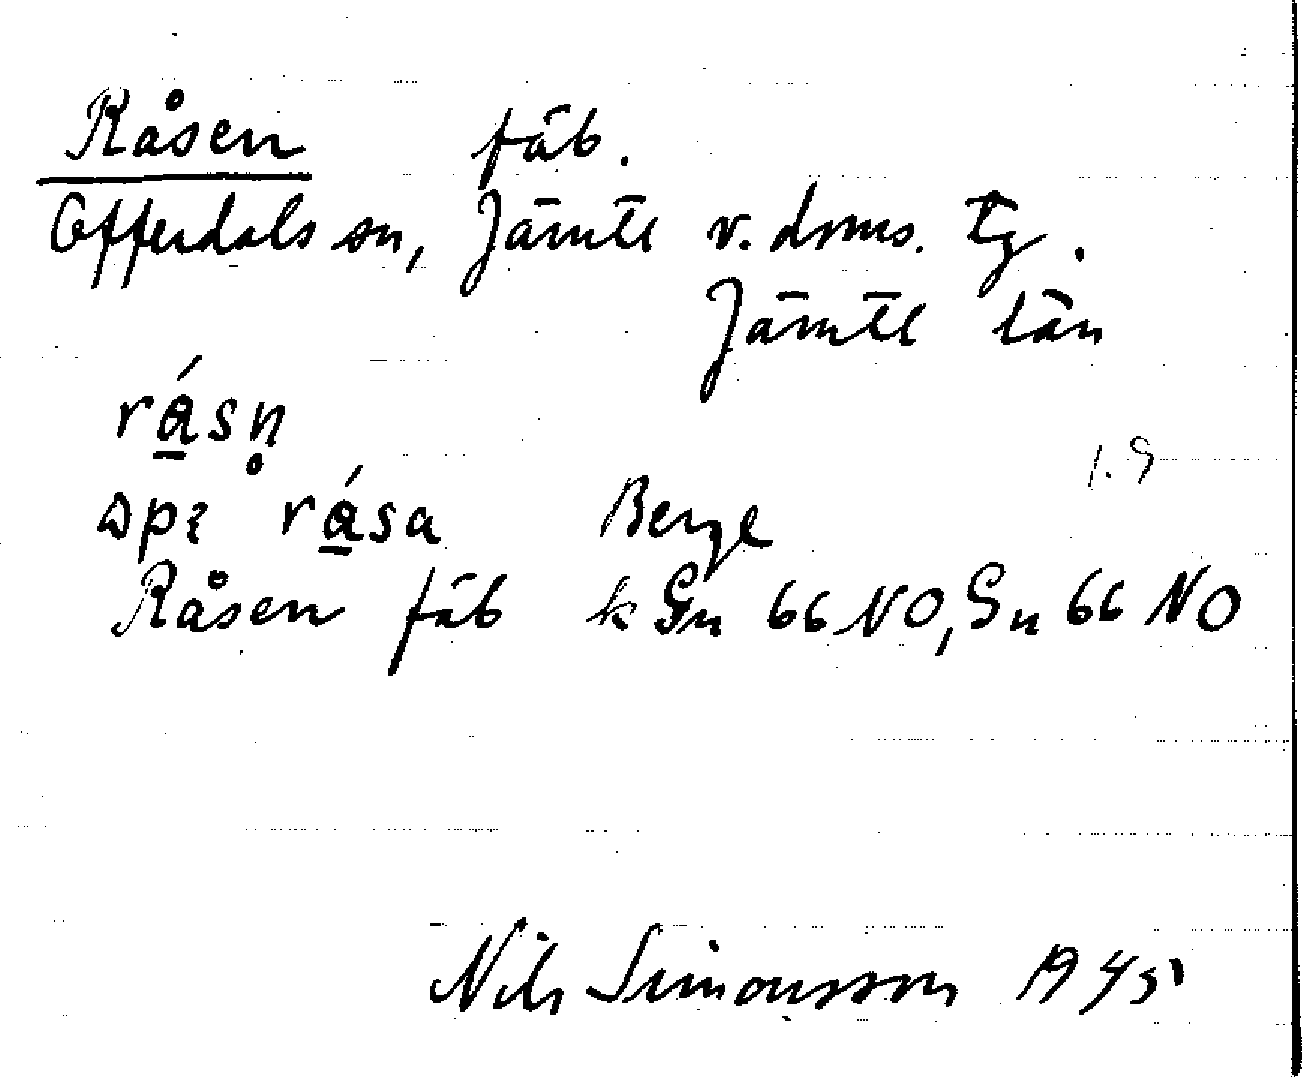 Råsen fäb.
Offerdals sn, Jämtl v. doms. tg.
Jämtl län
rá̱sn̥
rá̱sa Berge
1.9
Råsen fäb k Gn 66 NO, Gn 66 NO
Nils Simonsson 1945